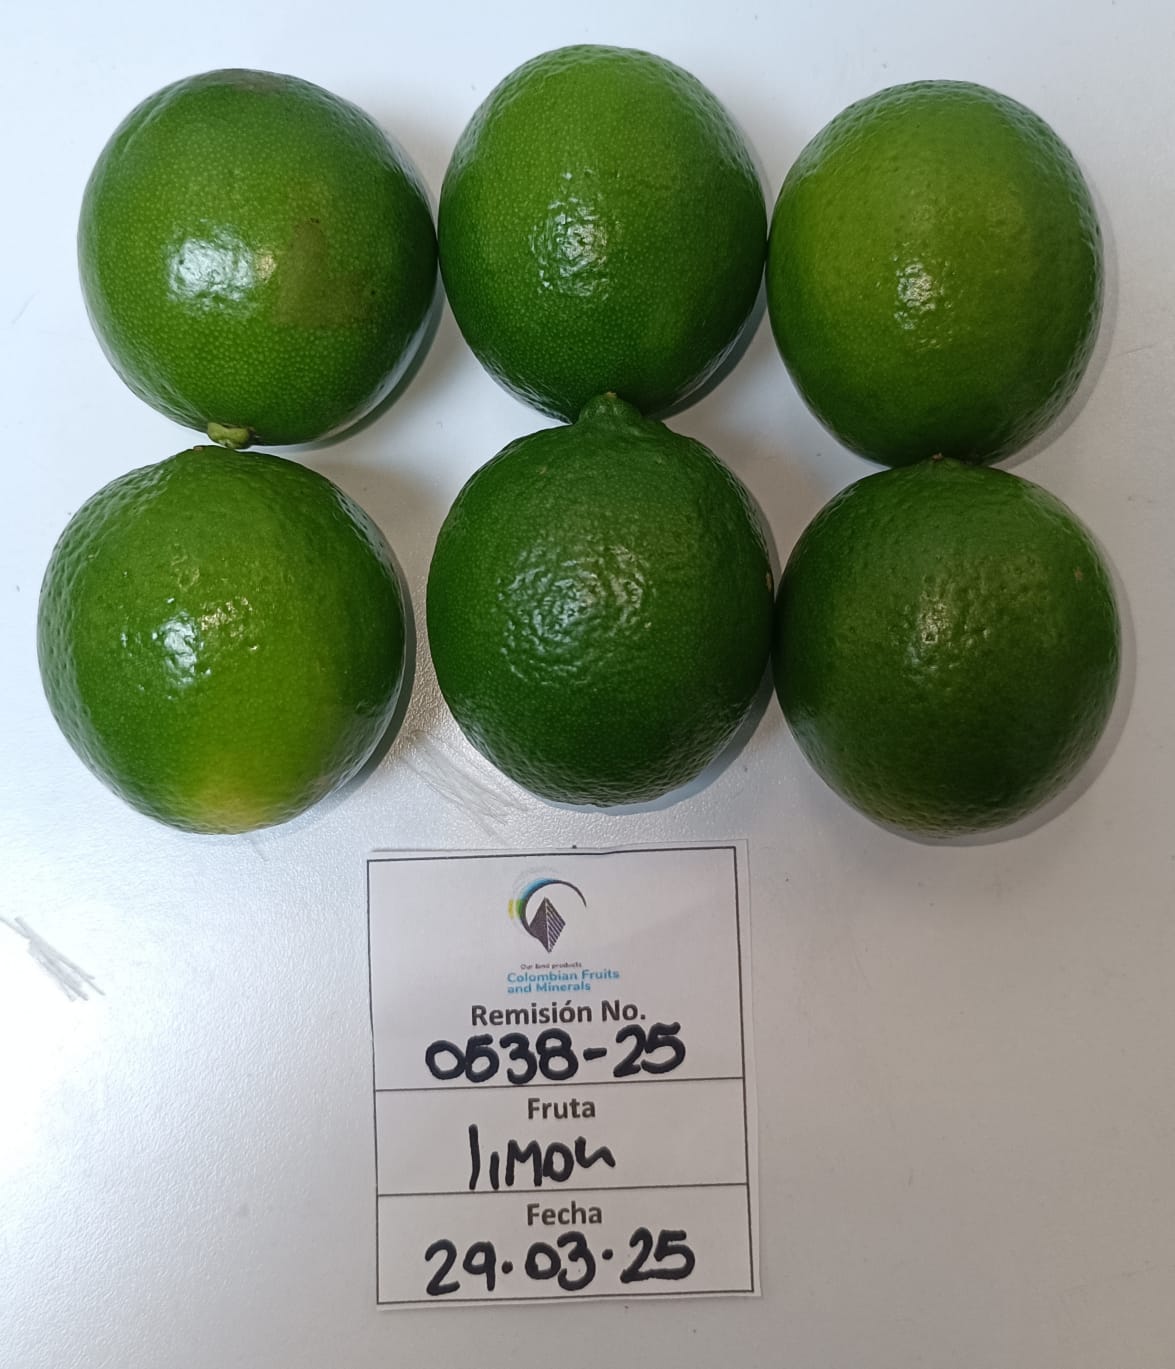 Our land products
Colombian Fruits
and Minerals
Remisión No.
0538-25
Fruta
limon
Fecha
29.03.25